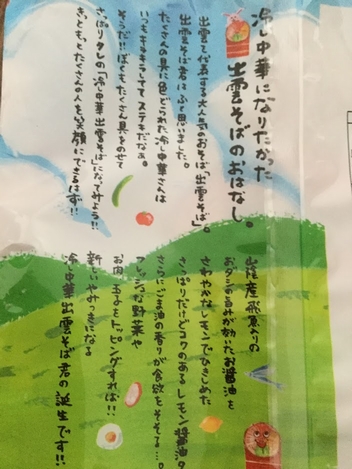 冷し中華になりたかった
出雲そばのおはなし。
出雲で代表する大人気のおそば「出雲そば」。
出雲そば君はふと思いました。
たくさんの具に色どられた冷し中華さんは
いっもキラキラしててステキだなぁ。
そうだ!!ぼくもたくさん具をのせて
さっぱりタレの「冷し中華出雲そば」になってみよう!!
きっともっとたくさんの人を笑顔にできるはず!!
山陰産飛魚入りの
おダシの旨みが効いたお醤油を
さわやかなレモンでひきしめた
さっぱりだけどコクのあるレモン醤油タレ
さらにごま油の香りが食欲をそそる…。
フレッシュな野菜や
お肉、玉子をトッピングすれば!!
新しいやみつきになる
冷し中華出雲そば君の誕生です!!